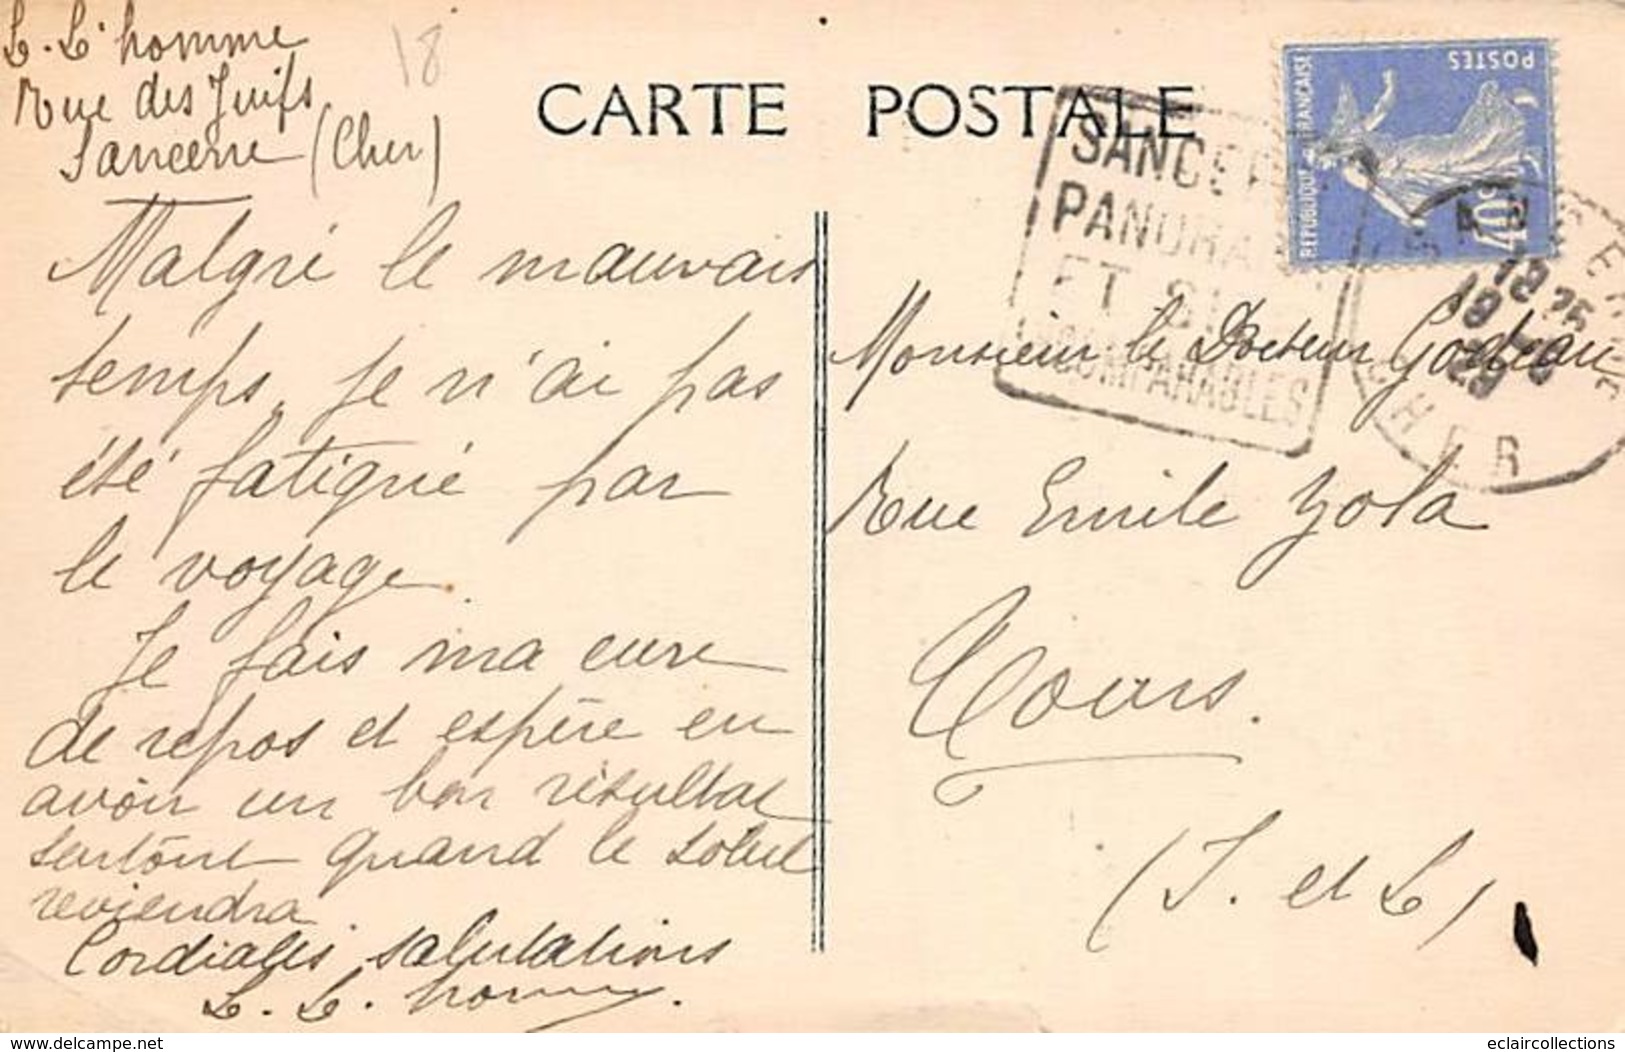 L. L'homme
Rue des Juifs
Sancerre (Cher)
18
CARTE POSTALE
POSTES
REPUBLIQUE FRANCAISE
40c
SANCER
PANORA
ET SI
INCOMPARABLES
SANCERRE
CHER
Malgré le mauvais
temps, je n'ai pas
été fatigué par
le voyage.
Je fais ma cure
de repos et espère en
avoir un bon résultat
surtout quand le soleil
reviendra.
Cordiales salutations
L. L. homme.
Monsieur le Docteur Godeau
Rue Emile Zola
Tours.
(I. et L)
www.delcampe.net
eclaircollections